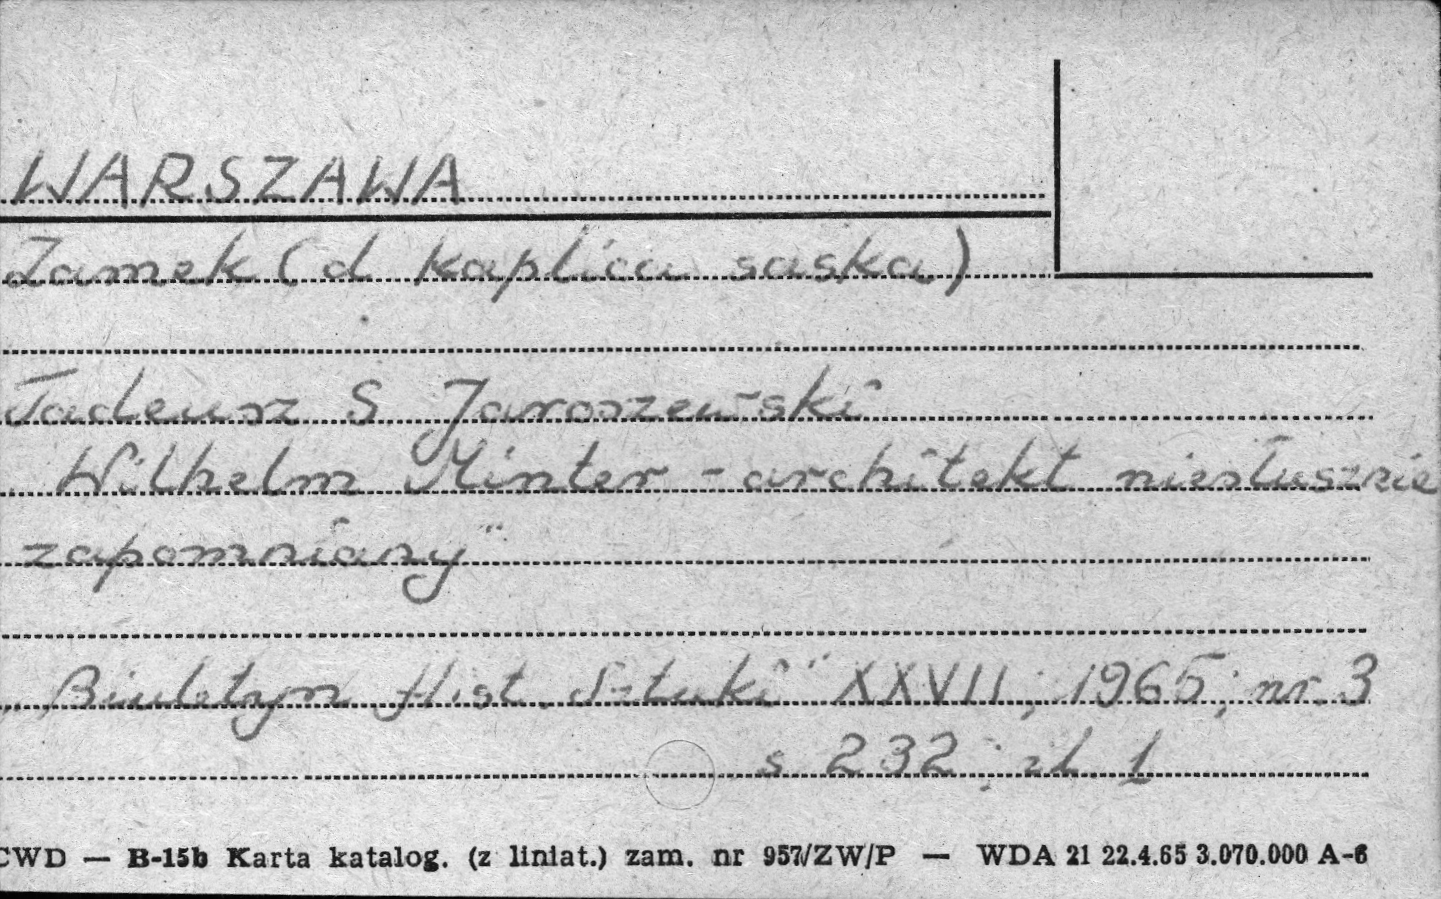 WARSZAWA
Zamek (d kaplica saska)
Tadeusz S Jaroszewski
Wilhelm Minter - architekt niesłusznie
zapomniany"
„Biuletyn Hist. Sztuki" XXVII; 1965; nr. 3
s 232; il. 1
CWD — B-15b Karta katalog. (z liniat.) zam. nr 957/ZW/P — WDA 21 22.4.65 3.070.000 A-6